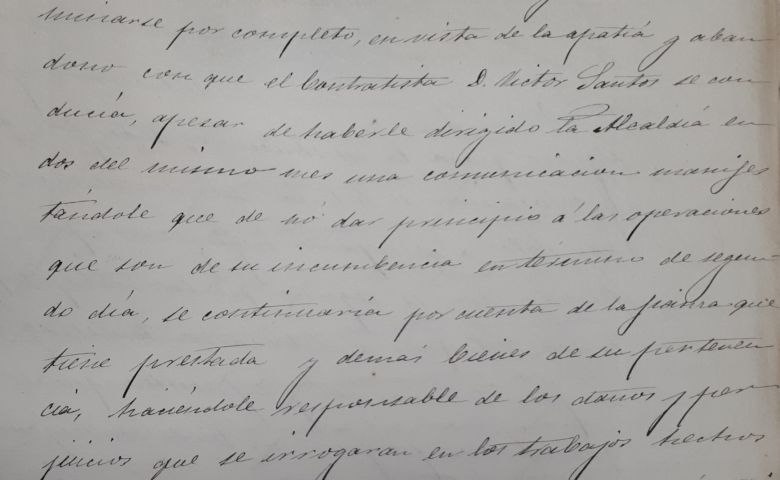 minarse por completo, en vista de la apatiá y aban
dono con que el Contratista D. Victor Santos se con
ducía, apesar de haberle dirigido la Alcaldiá en
dos del mismo mes una comunicacion manifes
tándole que de nó dar principio á las operaciones
que son de su incumbencia en término de segun
do día, se continuaría por cuenta de la fianza que
tiene prestada y demás bienes de su pertenen
cia, haciéndole responsable de los daños y per
juicios que se irrogaran en los trabajos hechos